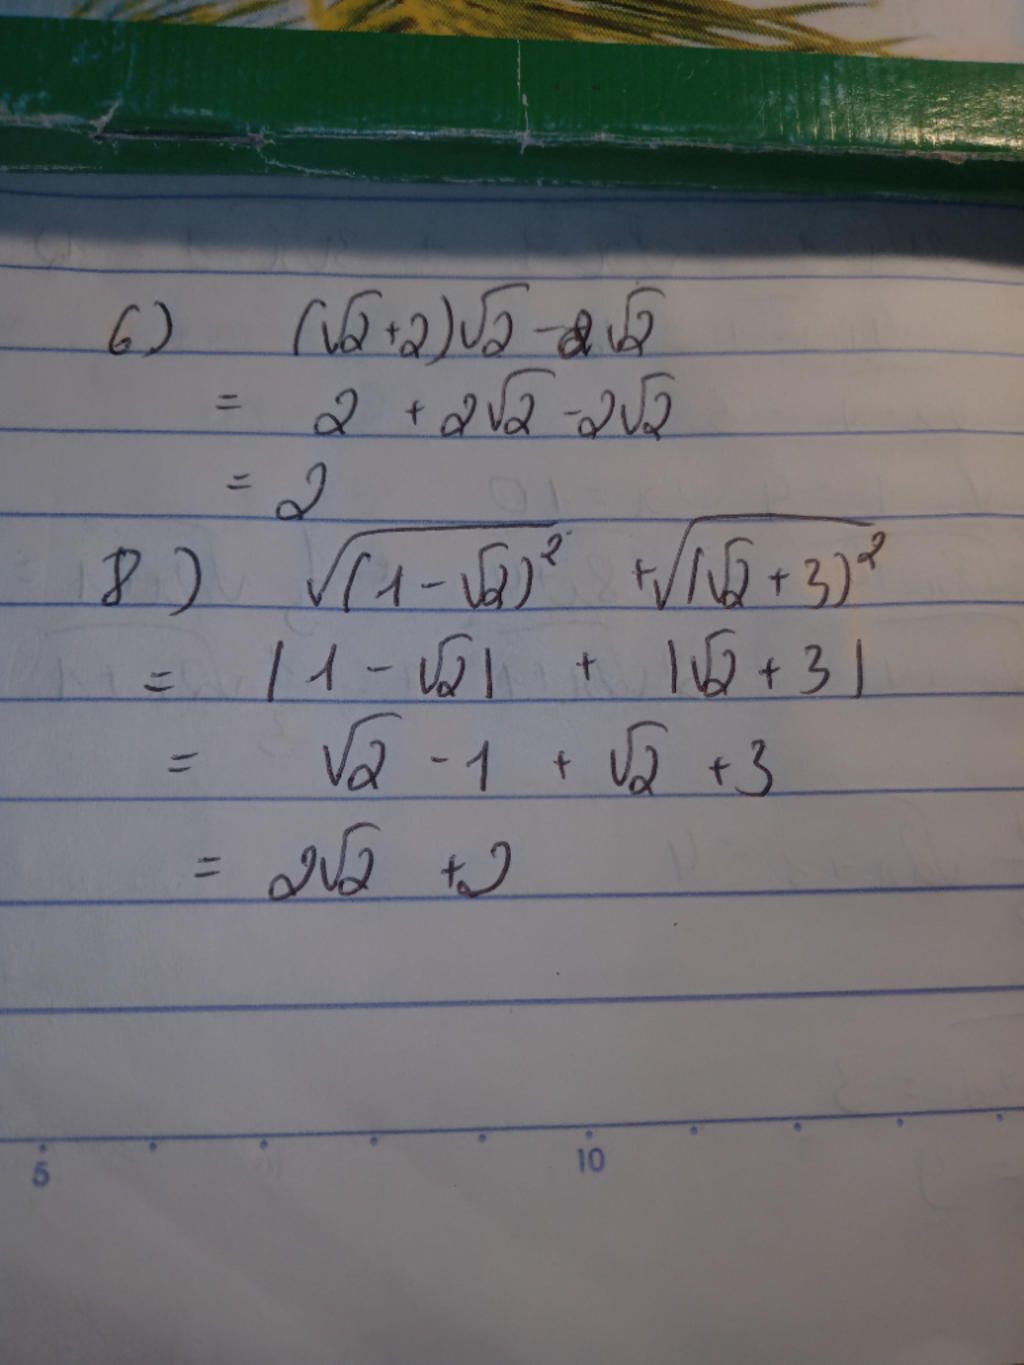 6) (√2+2)√2 -2√2
= 2 +2√2 -2√2
= 2
8) √(1-√2)² +√(√2+3)²
= |1-√2| + |√2+3|
= √2 -1 + √2 +3
= 2√2 +2
5 10